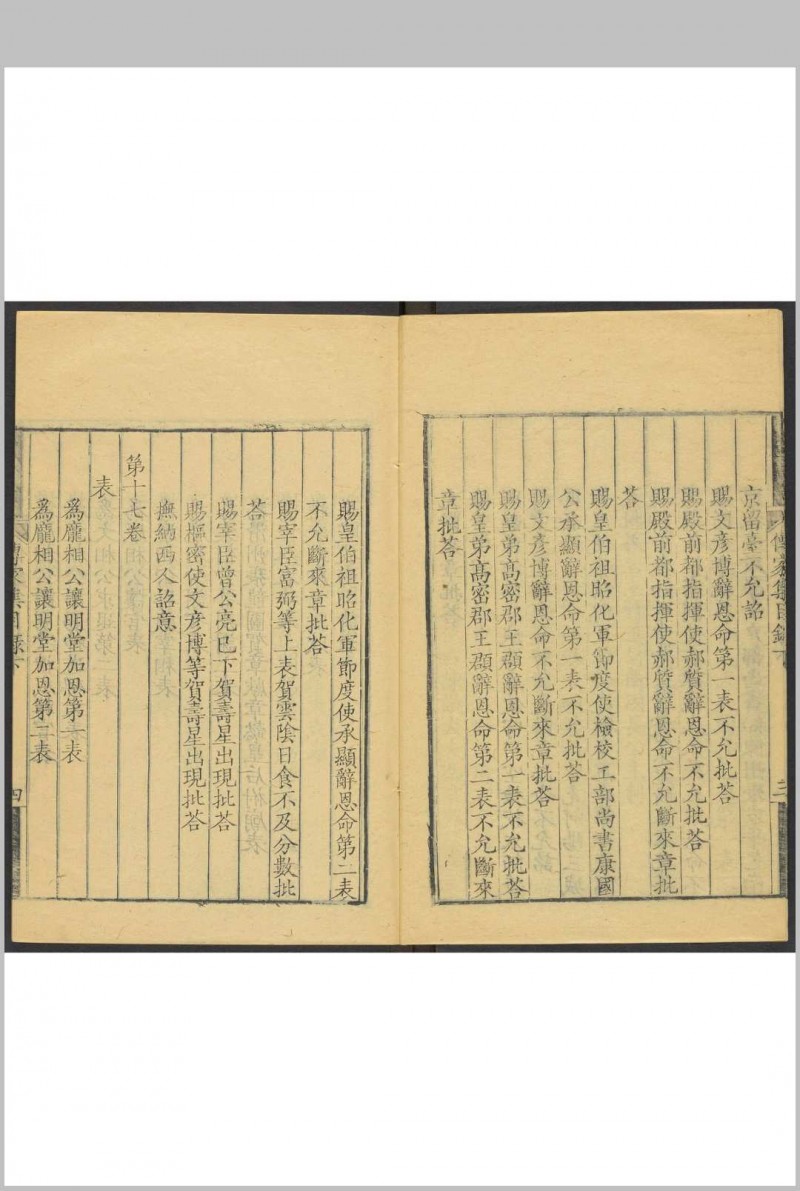 京留臺不允詔
賜文彥博辭恩命第一表不允批荅
賜殿前都指揮使郝質辭恩命不允批荅
賜殿前都指揮使郝質辭恩命不允斷來章批
荅
賜皇伯祖昭化軍節度使檢校工部尚書康國
公承顯辭恩命第一表不允批荅
賜文彥博辭恩命不允斷來章批荅
賜皇弟高密郡王頵辭恩命第一表不允批荅
賜皇弟高密郡王頵辭恩命第二表不允斷來
章批荅
傳家集目錄下
三
賜皇伯祖昭化軍節度使承顯辭恩命第二表
不允斷來章批荅
賜宰臣富弼等上表賀雲陰日食不及分數批
荅
賜宰臣曾公亮已下賀壽星出現批荅
賜樞密使文彥博等賀壽星出現批荅
撫納西人詔意
第十七卷
表
為龐相公讓明堂加恩第一表
為龐相公讓明堂加恩第二表
傳家集目錄下
四